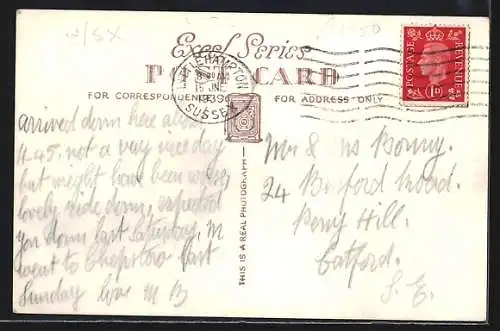 2/6X
Excel Series
POST CARD
FOR CORRESPONDENCE
FOR ADDRESS ONLY
LITTLEHAMPTON
15 JNE
1939
SUSSEX
POSTAGE
REVENUE
1D
THIS IS A REAL PHOTOGRAPH
arrived down here about
11.45. not a very nice day
but might have been worse,
lovely ride down, expected
you down last Saturday, M
went to Chepstow last
Sunday love M B
Mr & Ms Bonny.
24 Road.
Perry Hill.
Catford.
S.E.